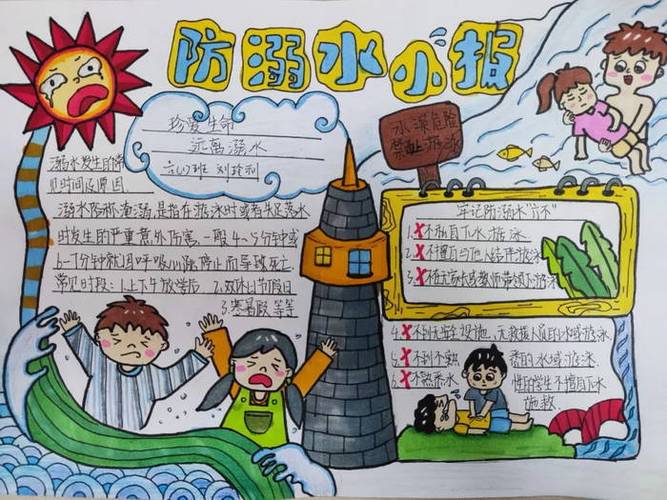 防溺水小报
珍爱生命
远离溺水
水深危险
禁止游泳
溺水发生的常
见时间及原因
溺水防称淹溺,是指在游泳时或者失足落水
时发生的严重意外伤害,一般4~5分钟或
6-7分钟就因呼吸心跳停止而导致死亡
常见时段:1.上下午放学后 2.双休日节假日
3.寒暑假等等
牢记防溺水"六不"
1.不私自下水游泳
2.不擅自与他人结伴游泳
3.不在无家长或教师带领下游泳
4.不到无安全设施、无救援人员的水域游泳
5.不到不熟悉的水域游泳
6.不熟悉水性的学生不擅自下水
施救.